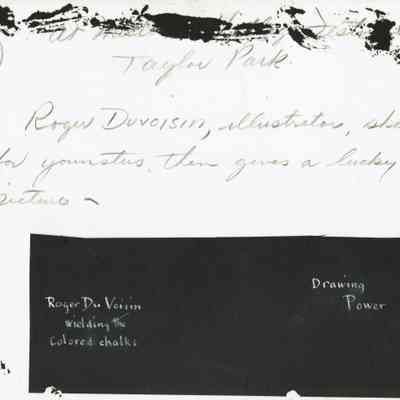 at
Taylor Park
Roger Duvoisin, illustrator, ske
for youngsters, then gives a lucky
picture -
Roger Du Voisin
wielding the
Colored chalks
Drawing
Power